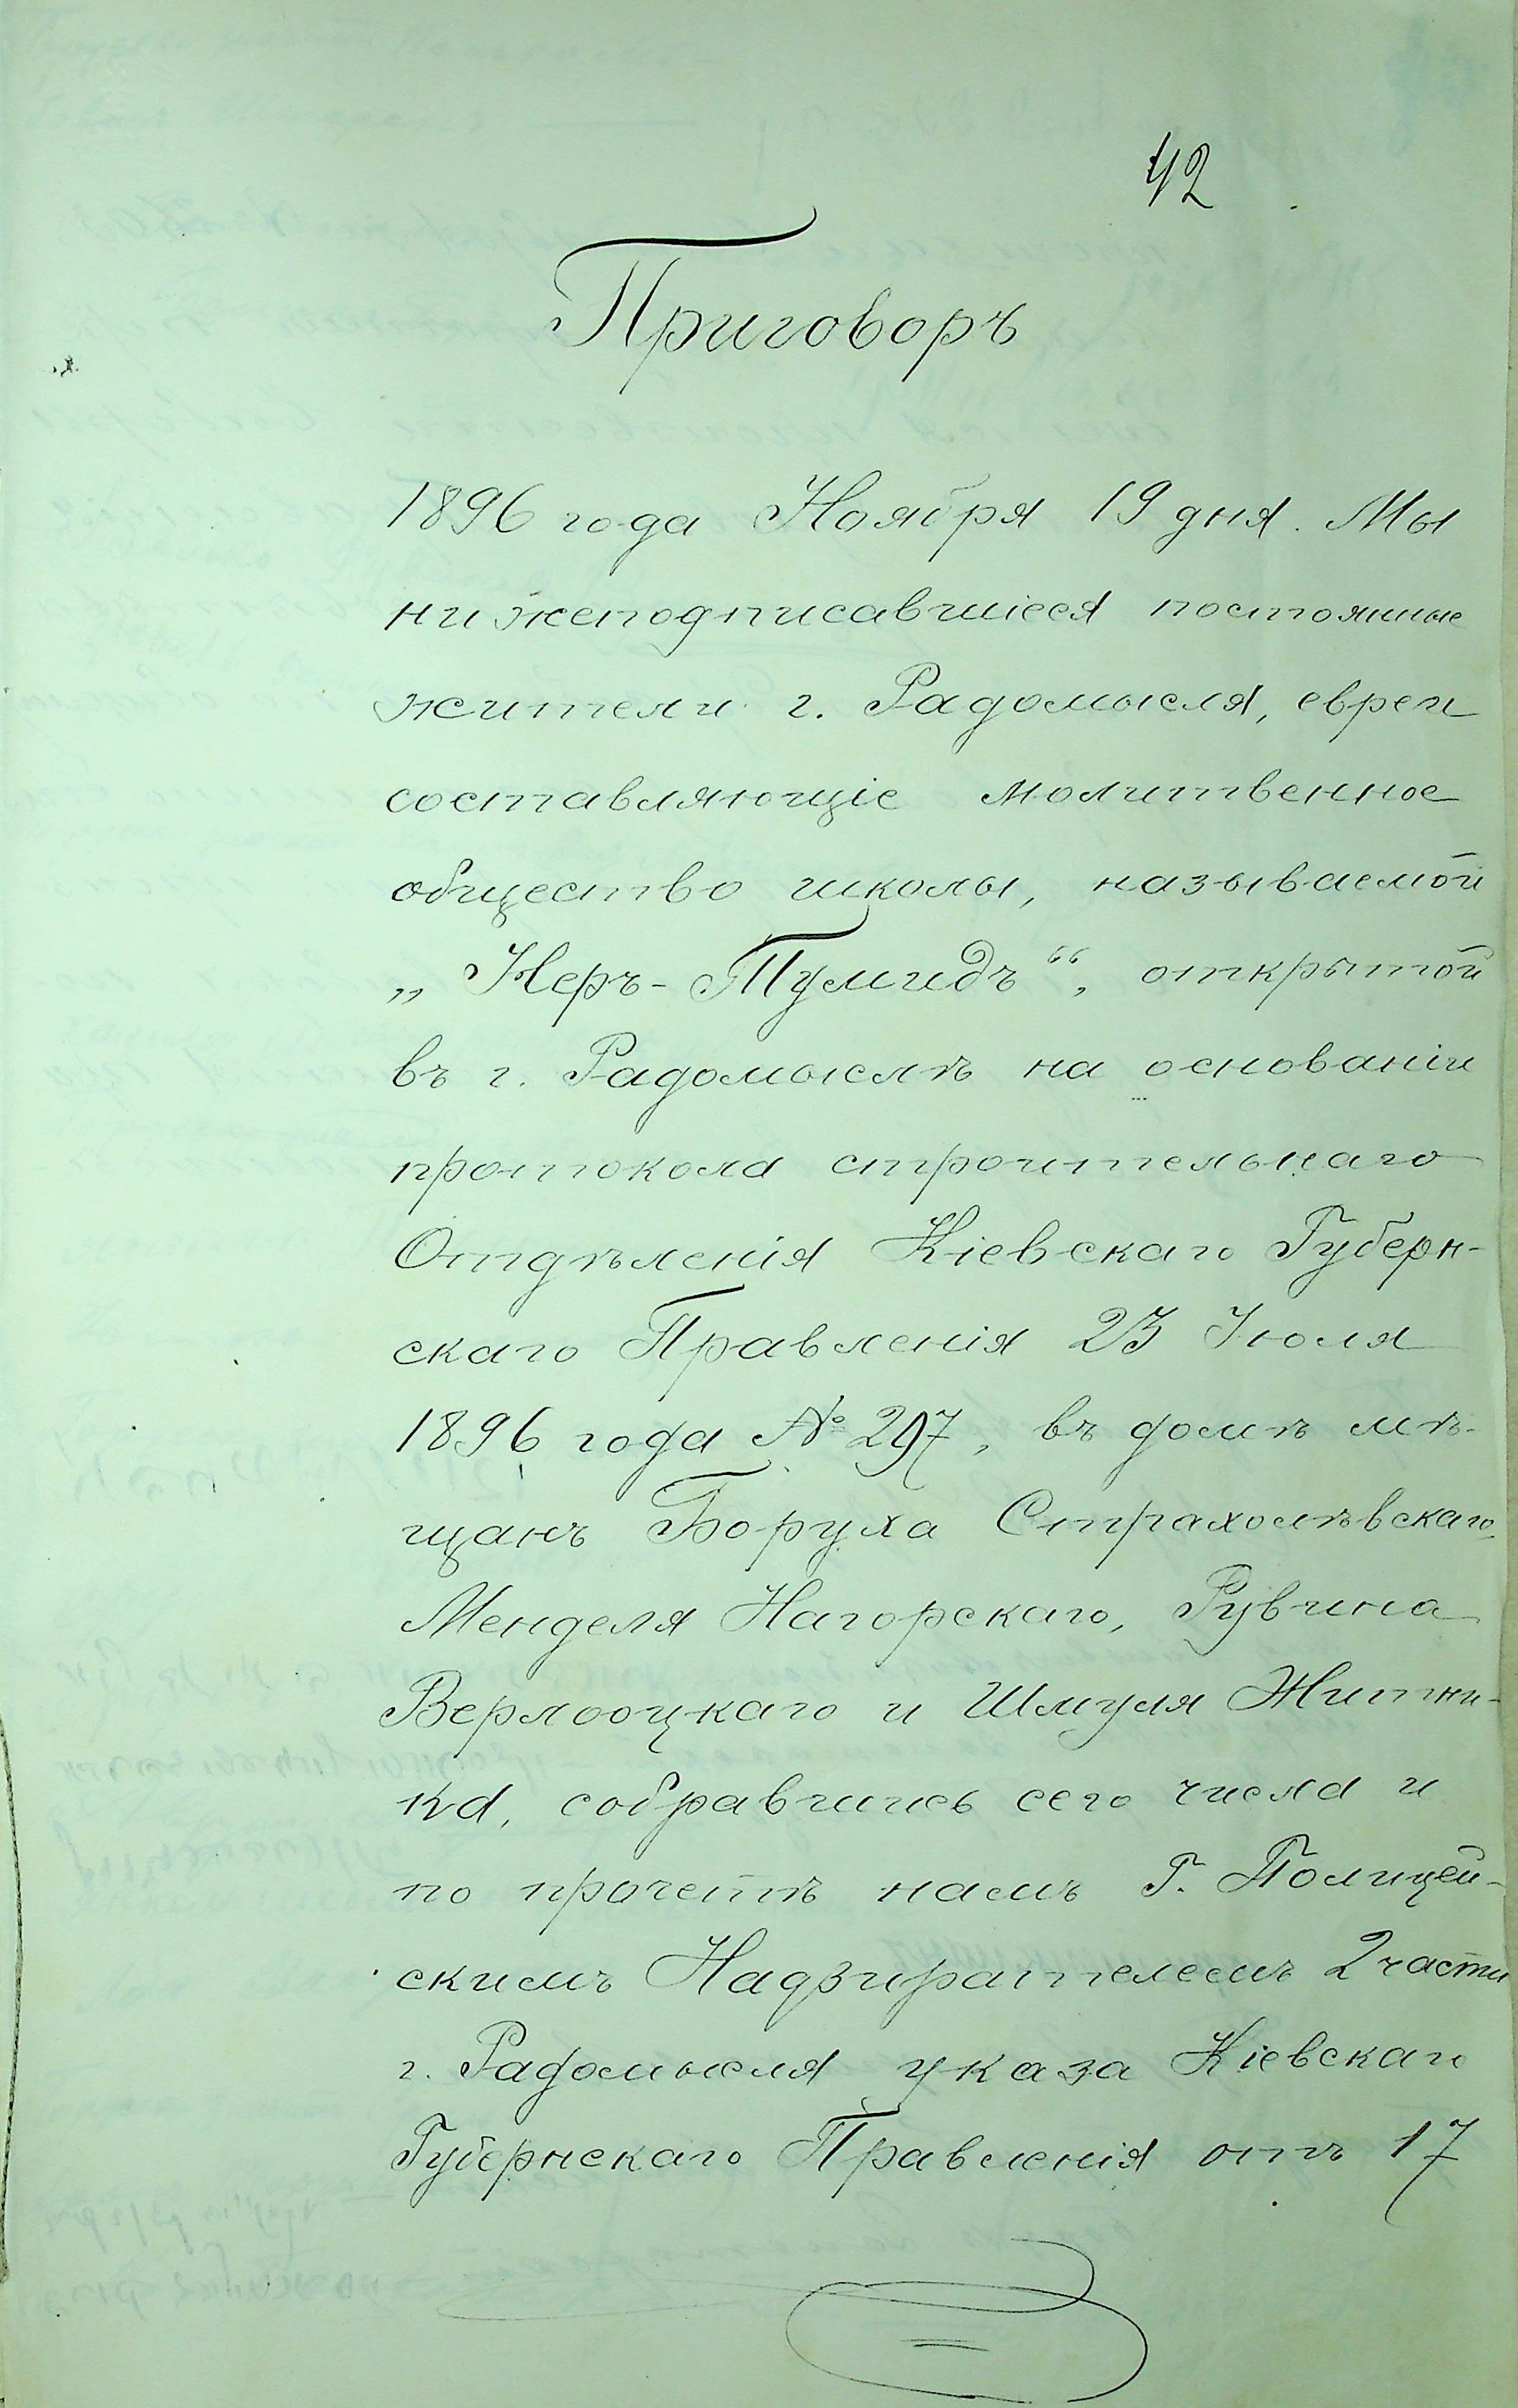 42
Приговоръ
1896 года Ноября 19 дня. Мы
нижеподписавшіеся постоянные
жители г. Радомысля, евреи
составляющіе молитвенное
общество школы, называемой
„Неръ-Тумидъ“, открытой
въ г. Радомыслѣ на основаніи
протокола строительнаго
Отдѣленія Кіевскаго Губерн-
скаго Правленія 23 Іюля
1896 года № 297, въ домѣ мѣ-
щанъ Боруха Страхолѣвскаго,
Менделя Нагорскаго, Рувина
Верлооцкаго и Шмуля Житни-
ка, собравшись сего числа и
по прочетѣ намъ Г. Полицей-
скимъ Надзирателемъ 2 части
г. Радомысля указа Кіевскаго
Губернскаго Правленія отъ 17